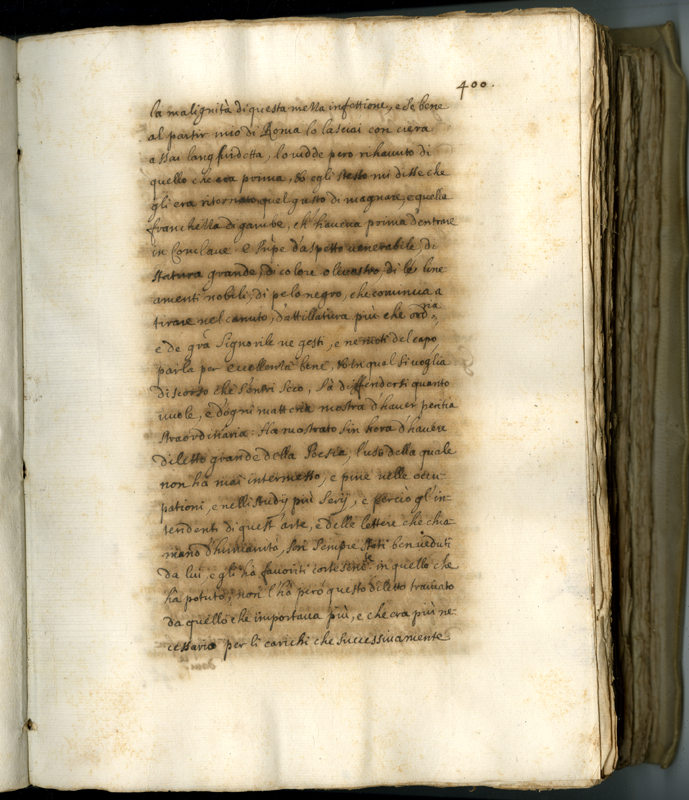 400.
la malignità di questa mella infettione, e se bene
al partir mio di Roma lo lasciai con ciera
assai languidetta, lo vidde però rihavuto di
quello che era prima, et egli stesso mi disse che
gli era ritornato quel gusto di magnare, e quella
franchezza di gambe, ch' haveva prima d'entrare
in Conclave. è Prnpe d'aspetto venerabile, di
statura grande, di colore olivastro, di le line-
amenti nobili, di pelo negro, che comincia a
tirare nel canuto, d'attillatura più che ordria,
e de grã Signorile ne gesti, e ne moti del capo
parla per eccellenza bene, et in qual si voglia
discorso che s'entri seco, sà diffondersi quanto
vuole, e d'ogni materia mostra d'haver peritia
straordinaria. Ha mostrato sin hora d'havere
diletto grande della Poesia, l'uso della quale
non ha mai intermesso, e pure nelle occu-
pationi, e nelli studij più serij, e perciò gl'in-
tendenti di quest' arte, e delle lettere che chia-
mano d'humanità, son sempre stati ben veduti
da lui, e gli hà favoriti cortesemte in quello che
hà potuto, non l'hà però questo diletto traviato
da quello che importava più, e che era più ne-
cessario per li carichi che successivamente